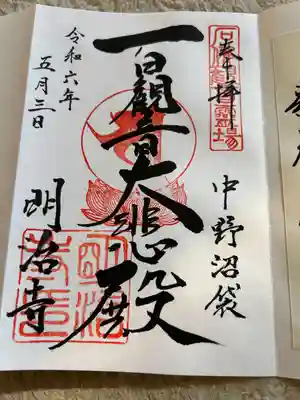 奉拝
中野沼袋
百觀音大悲殿
令和六年
五月三日
明治寺